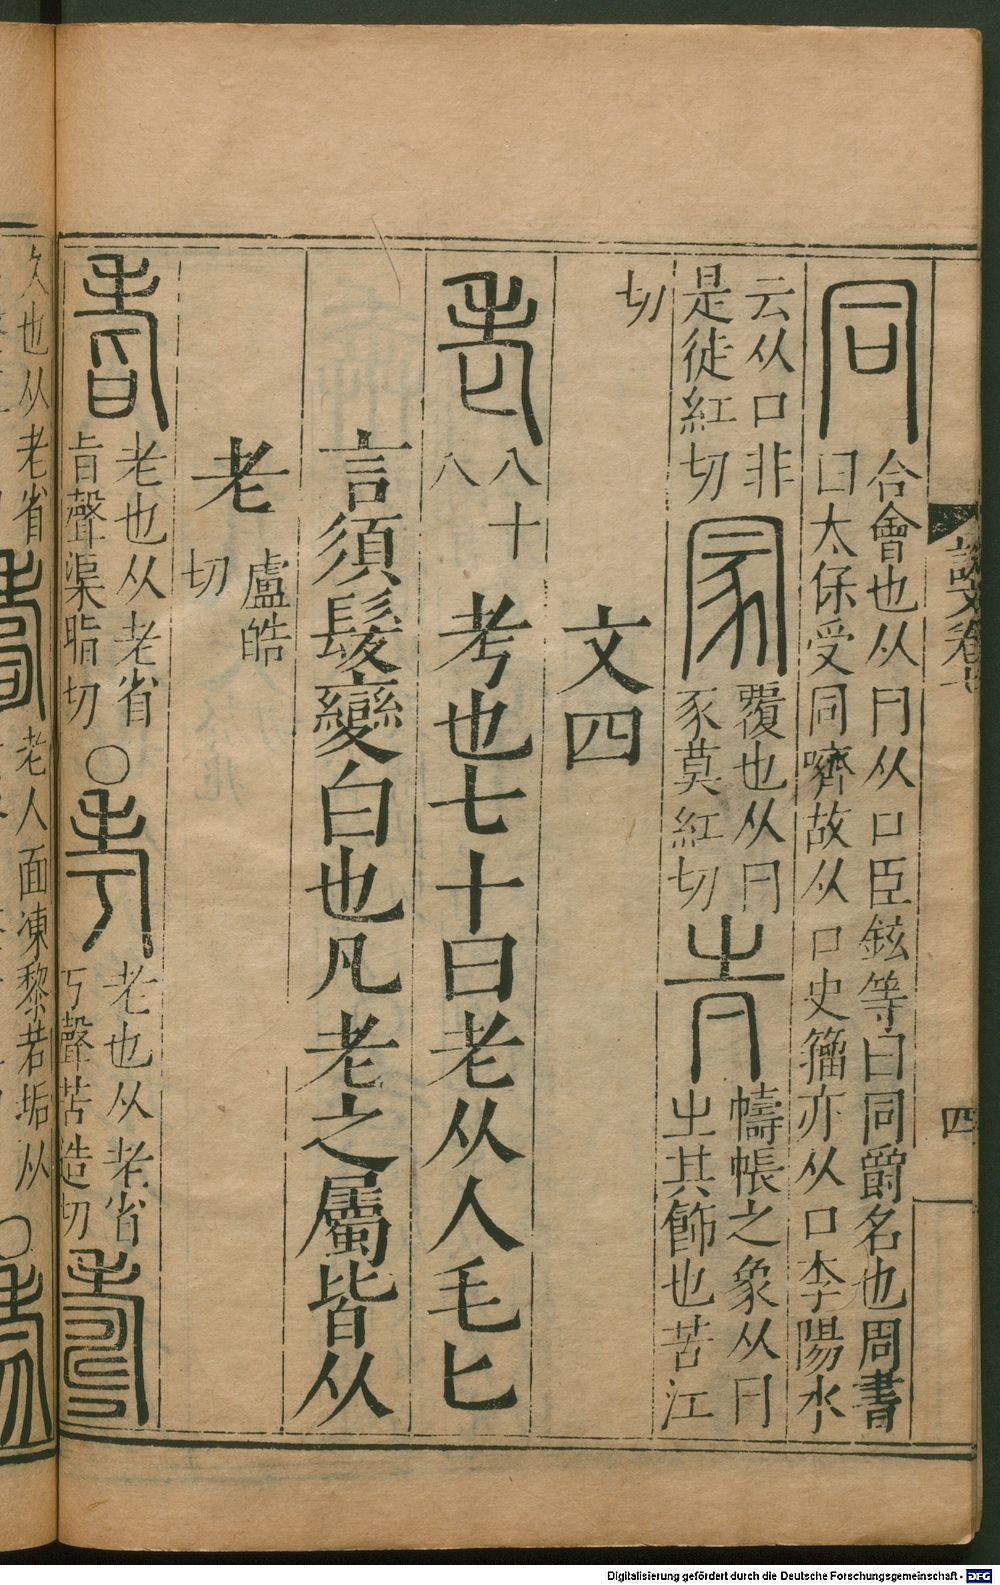 說文卷七
四
同 合會也从𠔼从口臣鉉等曰同爵名也周書
曰太保受同嚌故从口史籀亦从口李陽冰
云从口非
是徒紅切
冡 覆也从𠔼
豕莫紅切
幬帳之象从𠔼
㞢其飾也苦江
切
文四
老 八十
八
考也七十曰老从人毛匕
言須髮變白也凡老之屬皆从
老
盧皓
切
耆 老也从老省
旨聲渠脂切 〇
考 老也从老省
丂聲苦造切
壽
久也从老省
老人面凍黎若垢从
Digitalisierung gefördert durch die Deutsche Forschungsgemeinschaft - DFG